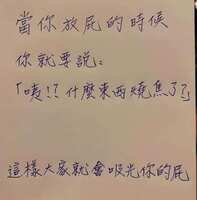 當你放屁的時候
你就要說：
「咦!? 什麼東西燒焦了?」
這樣大家就會吸光你的屁